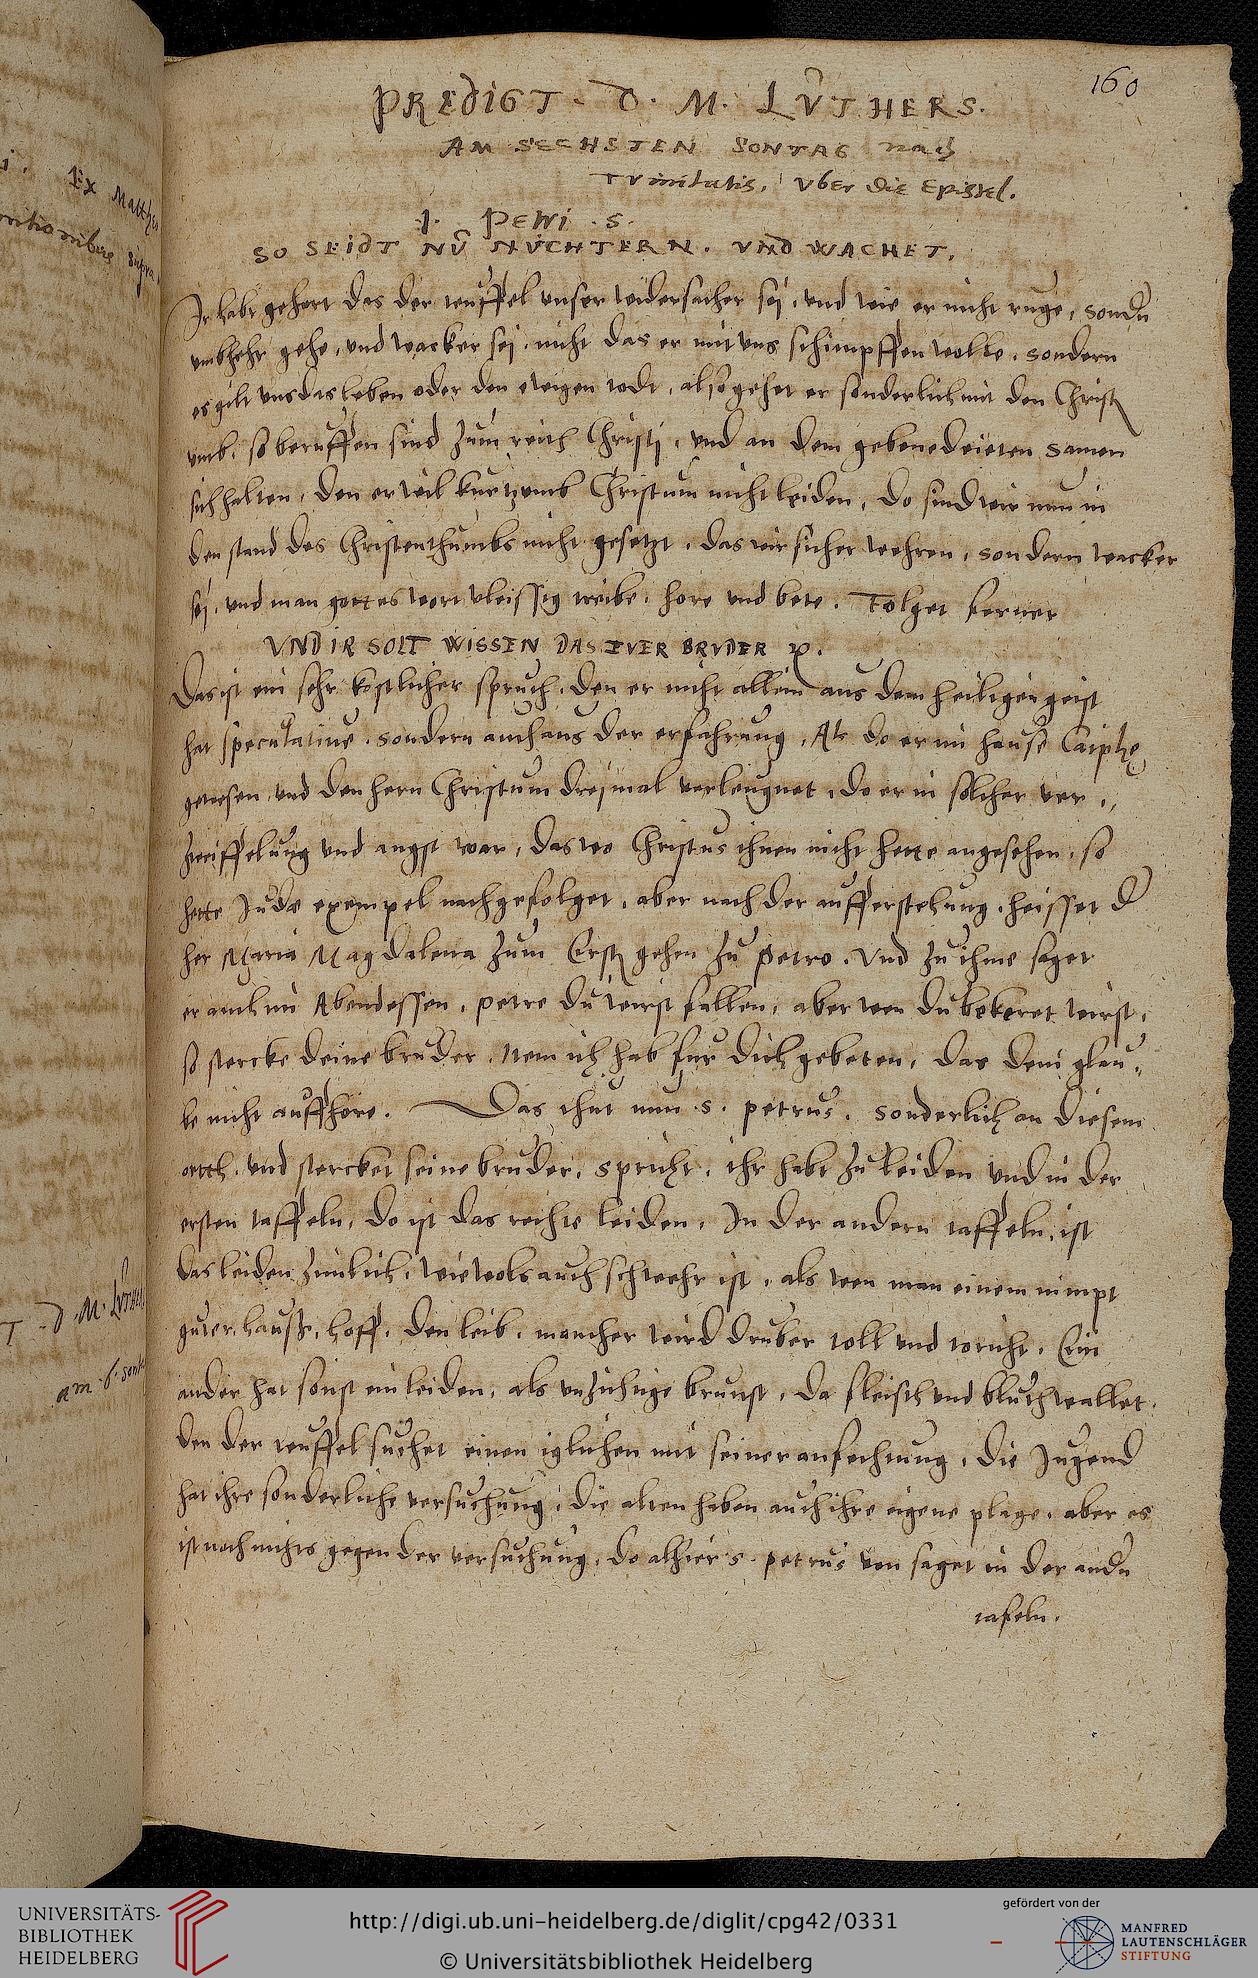 160
PREDIGT. D. M. LVTHERS.
AM SECHSTEN SONTAG nach
Trinitatis, vber die Epistel.
1. Petri .5.
SO SEIDT NV NVCHTERN. VND WACHET.
Ir habt gehort das der teuffel vnser widersacher sei, vnd wie er nicht ruge, sondn
vmbhehr gehe, vnd wacker sei, nicht das er mit vns schimpffen wolle, sondern
es gilt vns das leben oder den ewigen todt, also gehet er sonderlich mit den Christn
vmb, so beruffen sind zum reich Christi, vnd an dem gebenedeieten samen
sich halten, den er wil kurtzumb Christum nicht leiden, do sind wir nun in
den stand des Christenthumbs nicht gesetzt, das wir sicher wehren, sondern wacker
sei, vnd man gottes wort vleissig treibe, hore vnd bete. Folget ferner
VND IR SOLT WISSEN DAS EVER BRVDER
Das ist ein sehr kostlicher spruch, den er nicht allein aus dem heiligen geist
hat speculative, sondern auch aus der erfahrung, Als do er im hause Caiphe
gewesen, vnd den hern Christum dreimal verleugnet, do er in solcher ver„
zweiffelung vnd angst war, das wo Christus ihnen nicht hette angesehen, so
hette Judae exempel nachgefolget, aber nach der aufferstehung, heisset d
her Maria Magdalena zum Ersten gehen zu Petro. Vnd zu ihme saget
er auch im Abendessen, petre du wirst fallen, aber wen du bekeret wirst,
so stercke deine bruder, Item ich hab fur dich gebeten, das dein glau„
be nicht auffhore. Das thut nun S. petrus, sonderlich an diesem
orth, vnd stercket seine bruder, spricht, ihr habt zu leiden vnd in der
ersten taffeln, do ist das rechte leiden, In der andern taffeln, ist
das leiden zimlich, wiewols auch schwehr ist, als wen man einem nimpt
guter, hauss, hoff, den leib, mancher wird druber toll vnd toricht, Ein
ander hat sonst ein leiden, als vnzichtige brunst, da fleisch vnd bluth wallet,
den der teuffel suchet einen iglichen mit seiner anfechtung, die Jugend
hat ihre sonderliche versuchung, die alten haben auch ihre eigene plage, aber es
ist noch nichts gegen der versuchung, do alhier S. petrus von saget in der andn
tafeln.
Ex Matthei
supra
T . D. M. LVTHERS
am .6. sont
UNIVERSITÄTS-
BIBLIOTHEK
HEIDELBERG
http://digi.ub.uni-heidelberg.de/diglit/cpg42/0331
© Universitätsbibliothek Heidelberg
gefördert von der
MANFRED
LAUTENSCHLÄGER
STIFTUNG